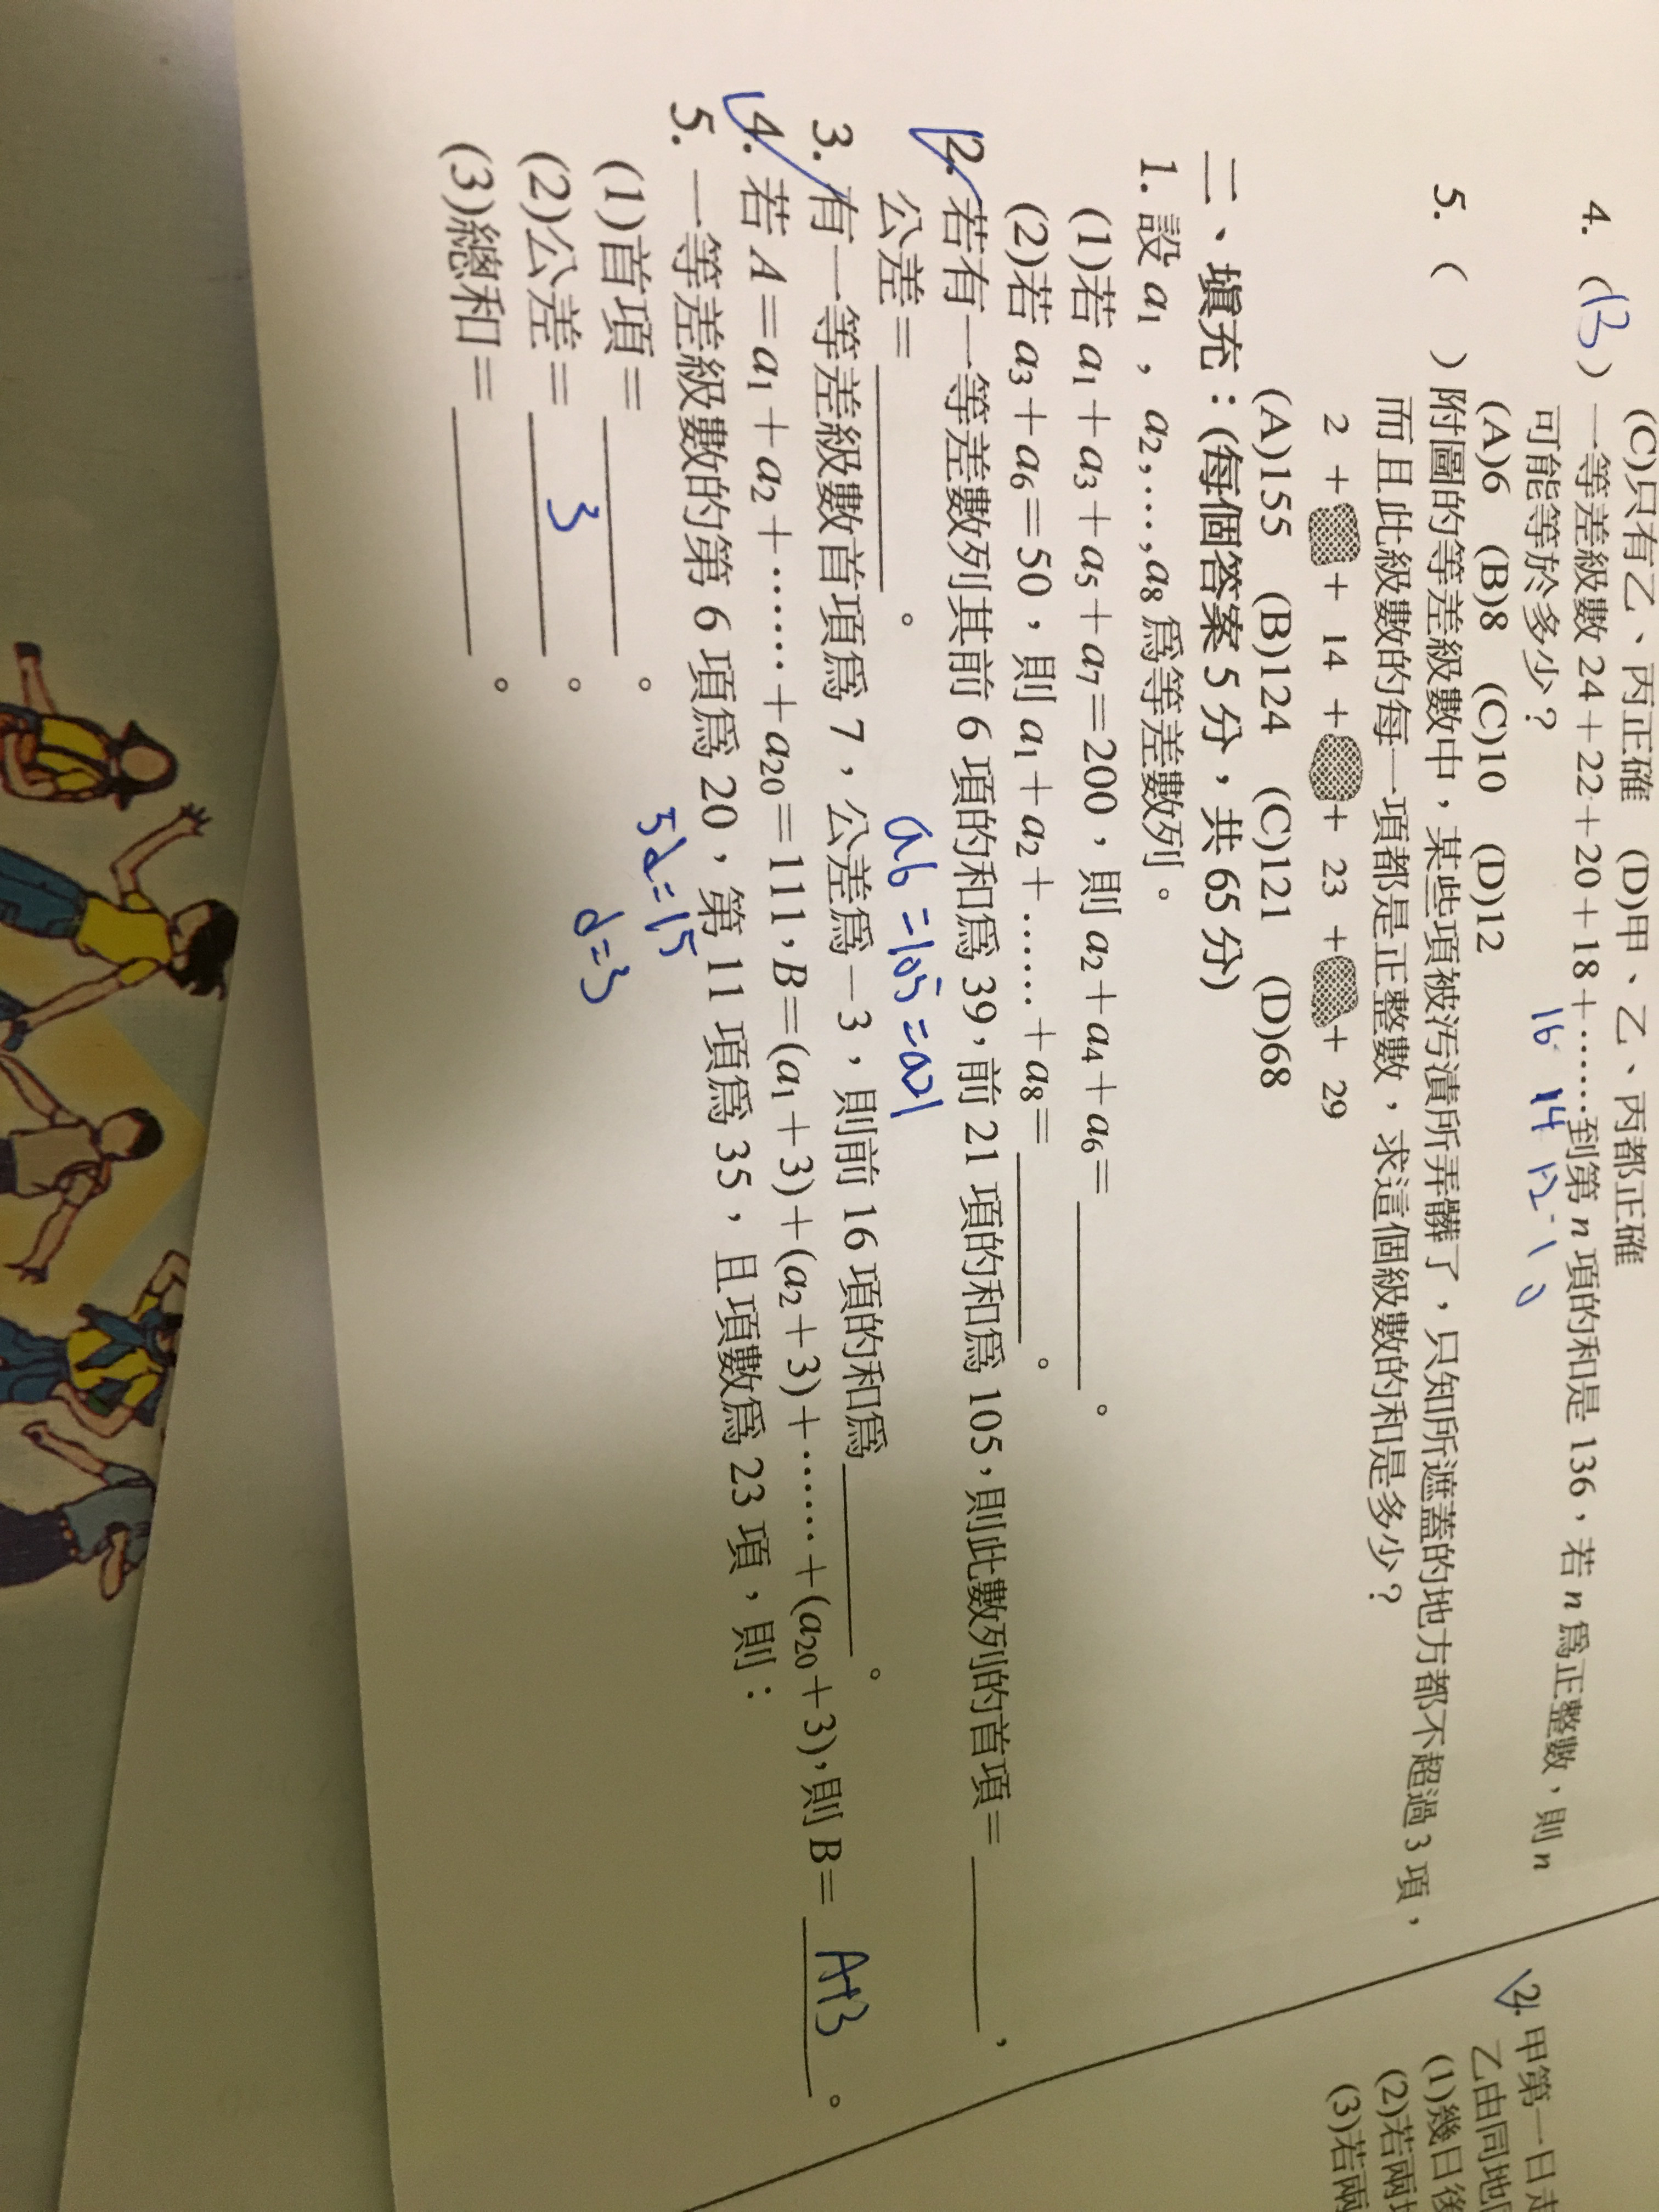 (C)只有乙、丙正確 (D)甲、乙、丙都正確
4. (B) 一等差級數 24＋22＋20＋18＋……到第 n 項的和是 136，若 n 爲正整數，則 n
16 14 12
可能等於多少？
(A)6 (B)8 (C)10 (D)12
5. ( ) 附圖的等差級數中，某些項被汚漬所弄髒了，只知所遮蓋的地方都不超過 3 項，
而且此級數的每一項都是正整數，求這個級數的和是多少？
2 ＋ ＋ 14 ＋ ＋ 23 ＋ ＋ 29
(A)155 (B)124 (C)121 (D)68
二、塡充：(每個答案 5 分，共 65 分)
1. 設 a₁，a₂,…,a₈ 爲等差數列。
(1)若 a₁＋a₃＋a₅＋a₇＝200，則 a₂＋a₄＋a₆＝ 。
(2)若 a₃＋a₆＝50，則 a₁＋a₂＋……＋a₈＝ 。
2. 若有一等差數列其前 6 項的和爲 39，前 21 項的和爲 105，則此數列的首項＝ ，
公差＝ 。
a6 = 105 = a21
3. 有一等差級數首項爲 7，公差爲－3，則前 16 項的和爲 。
4. 若 A＝a₁＋a₂＋……＋a₂₀＝111，B＝(a₁＋3)＋(a₂＋3)＋……＋(a₂₀＋3)，則 B＝ A+3 。
5. 一等差級數的第 6 項爲 20，第 11 項爲 35，且項數爲 23 項，則：
(1)首項＝ 。
5d=15
(2)公差＝ 3 。
d=3
(3)總和＝ 。
2. 甲第一日走
乙由同地
(1)幾日後
(2)若兩
(3)若兩